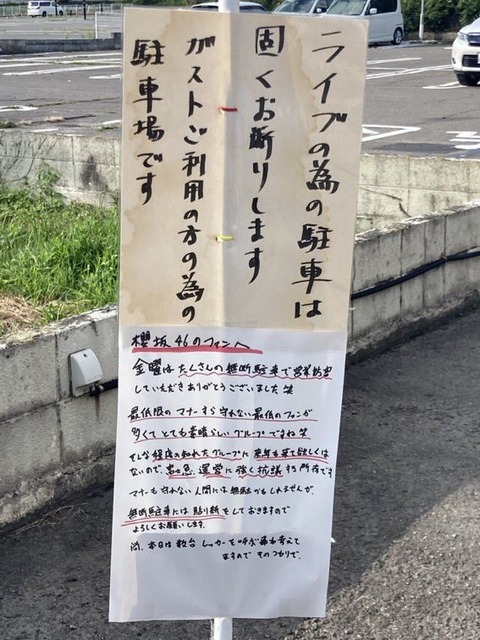 ライブの為の駐車は
固くお断りします
ガストご利用の方の為の
駐車場です
櫻坂46のファンへ
金曜はたくさんの無断駐車で営業妨害
していただきありがとうございました笑
最低限のマナーすら守れない最低のファンが
多くてとても素晴らしいグループですね笑
そんな程度の知れたグループに来年も来て欲しくは
ないので、運営に強く抗議する所存です
マナーも守れない人間には無駄かもしれませんが、
無断駐車には貼り紙をしておきますので
よろしくお願いします。
尚、本日は数台レッカーを呼ぶ事も考えて
ますので そのつもりで。